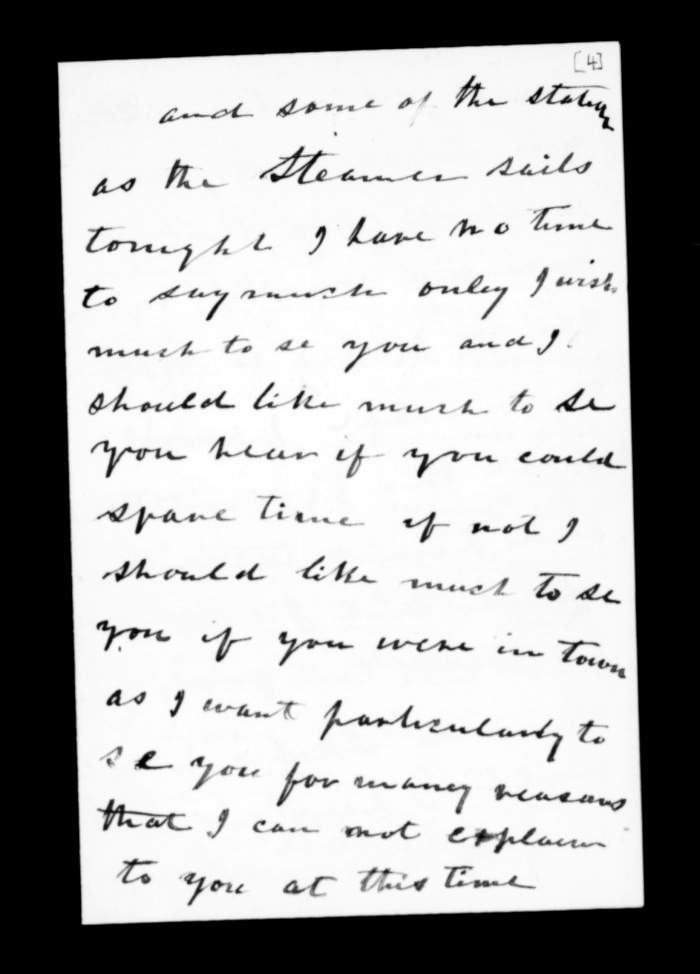 [4]
and some of the
as the Steamer sails
tonight I have no time
to say much onley I wish
much to se you and I
should like much to se
you hear if you could
spare time if not I
should like much to se
you if you were in town
as I want particularly to
se you for maney reasons
that I can not explain
to you at this time